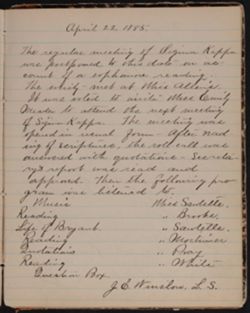 April 22, 1885.
The regular meeting of Sigma Kappa
was postponed to this date on ac-
count of a sophomore reading.
The society met at Miss
It was voted to invite Miss Emily
to attend the next meeting
of Sigma Kappa. The meeting was
opened in usual form - After read
ing of scriptures, the roll call was
answered with quotations. Secreta-
ry's report was read and
approved. Then the following pro
gram was listened to.
Music Miss Sawtelle.
Reading " Brooks.
Life of Bryant " Sawtelle.
Reading " Mortimer
Quotations " Pray
Reading " White
Question Box
J. E. Winslow, L. S.